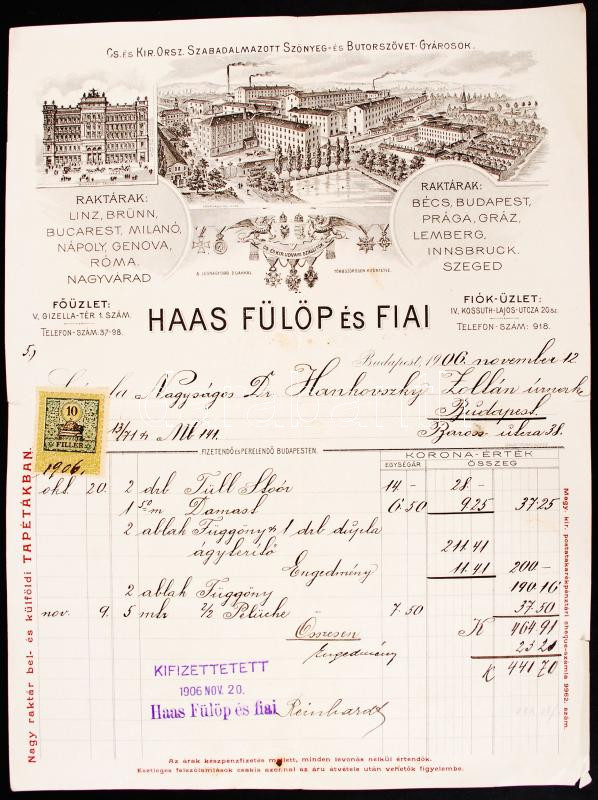 Cs. és Kir. Orsz. Szabadalmazott Szőnyeg- és Butorszövet-Gyárosok.
RAKTÁRAK:
LINZ, BRÜNN,
BUCAREST, MILANÓ,
NÁPOLY, GENOVA,
RÓMA.
NAGYVÁRAD
RAKTÁRAK:
BÉCS, BUDAPEST,
PRÁGA, GRÁZ,
LEMBERG,
INNSBRUCK.
SZEGED
A LEGNAGYOBB DIJAKKAL
TÖBBSZÖRÖSEN KITÜNTETVE.
FŐÜZLET:
V, GIZELLA-TÉR 1. SZÁM.
TELEFON-SZÁM: 37-98.
HAAS FÜLÖP és FIAI
FIÓK-ÜZLET:
IV, KOSSUTH-LAJOS-UTCZA 20. sz
TELEFON-SZÁM: 918.
5.)
Budapest, 1906. november 12
Számla Nagyságos Dr. Hankovszky Zoltán urnak
Budapest.
13/71 Mt 141.
Baross-utcza 38.
10
FILLÉR
1906.
FIZETENDŐ ÉS PERELENDŐ BUDAPESTEN.
KORONA-ÉRTÉK
EGYSÉGÁR
ÖSSZEG
okt. 20. 2 drb Tüll Stoór 14 - 28 -
1 50 m Damast 6.50 9 25 37.25
2 ablak Függöny & 1 drb dupla
ágyterítő 211.41
Engedmény 11.41 200-
2 ablak Függöny 190.16
nov. 9. 5 mtr Pelüche 7.50 37.50
Összesen K 464.91
Engedmény 23 21
K 441.70
KIFIZETTETETT
1906 NOV. 20.
Haas Fülöp és fiai
Reinhardt
Nagy raktár bel- és külföldi TAPÉTÁKBAN.
Magy. kir. postatakarékpénztári cheque-számla 9962. szám.
Az árak készpénzfizetés mellett, minden levonás nélkül értendők.
Esetleges felszólamlások csakis azonnal az áru átvétele után vehetők figyelembe.